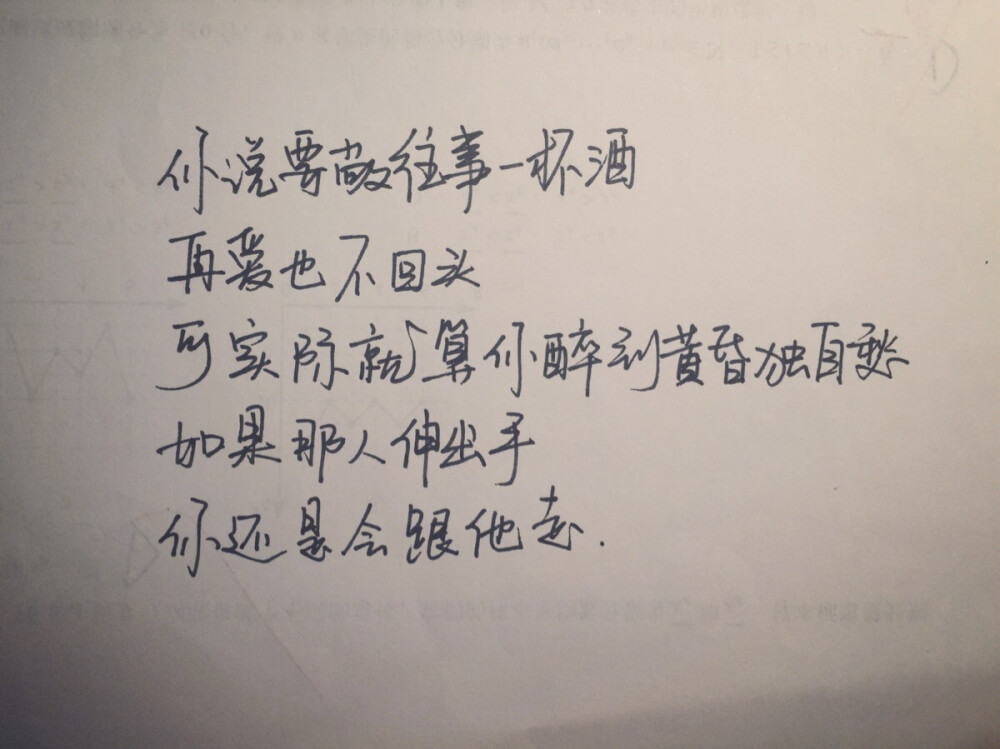 你说要敬往事一杯酒
再爱也不回头
可实际就算你醉到黄昏独自愁
如果那人伸出手
你还是会跟他走.